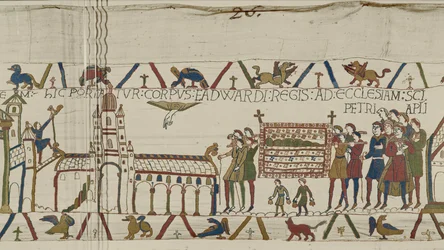 26.
E HIC PORTATVR: CORPVS: EADWARDI: REGIS: AD: ECCLESIAM: SCI
PETRI APLI